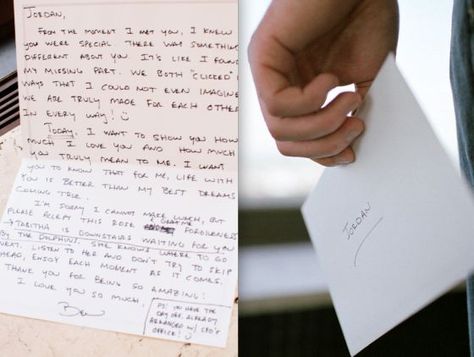 JORDAN,
FROM THE MOMENT I MET YOU, I KNEW
YOU WERE SPECIAL. THERE WAS SOMETHING
DIFFERENT ABOUT YOU. IT'S LIKE I FOUND
MY MISSING PART. WE BOTH "CLICKED" IN
WAYS THAT I COULD NOT EVEN IMAGINE.
WE ARE TRULY MADE FOR EACH OTHER
IN EVERY WAY! :)
TODAY, I WANT TO SHOW YOU HOW
MUCH I LOVE YOU AND HOW MUCH
YOU TRULY MEAN TO ME. I WANT
YOU TO KNOW THAT FOR ME, LIFE WITH
YOU IS BETTER THAN MY BEST DREAMS
COMING TRUE.
I'M SORRY I CANNOT MAKE LUNCH, BUT
PLEASE ACCEPT THIS ROSE FORGIVENESS
→ TABITHA IS DOWNSTAIRS WAITING FOR YOU
BY THE DOLPHINS. SHE KNOWS WHERE TO GO
NEXT. LISTEN TO HER AND DON'T TRY TO SKIP
AHEAD, ENJOY EACH MOMENT AS IT COMES.
THANK YOU FOR BEING SO AMAZING!
I LOVE YOU SO MUCH,
Ben
PS: YOU HAVE THE
DAY OFF. ALREADY
ARRANGED W/ CPO'S
OFFICE! :)
JORDAN